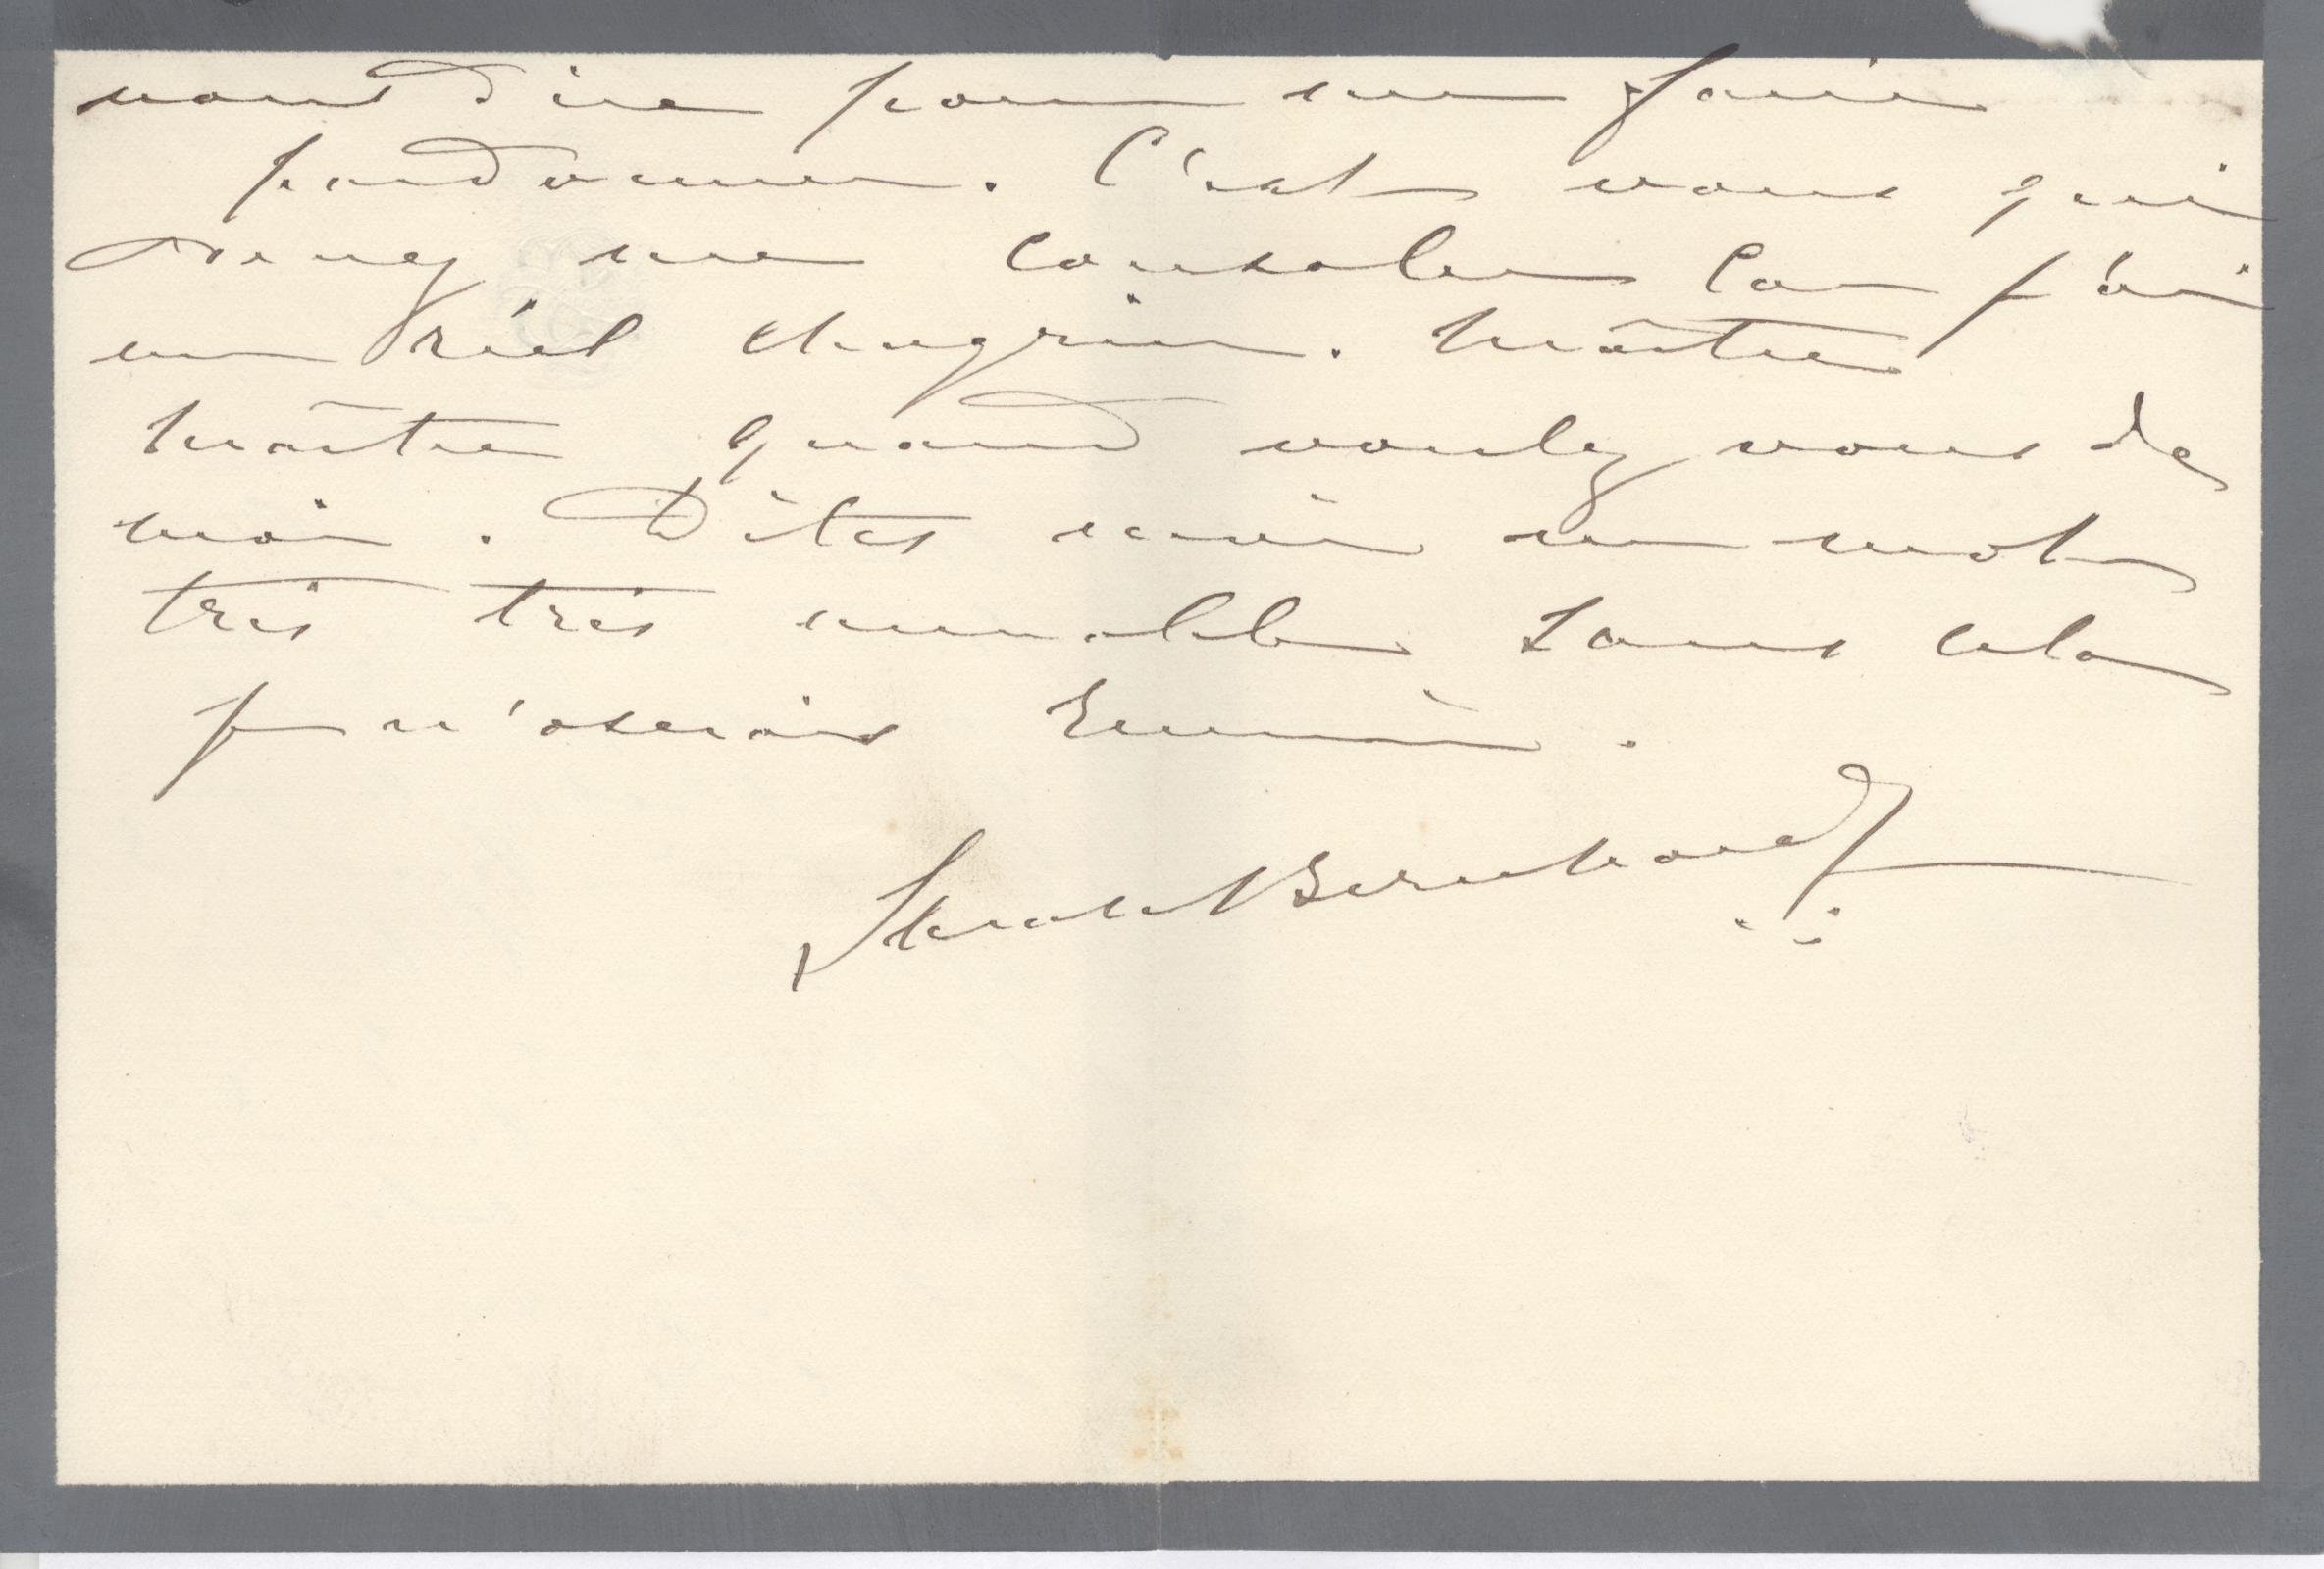 vous dire pour me faire
pardonner. C'est vous qui
devez me consoler car j'ai
un réel chagrin. Maître
Maître quand voulez vous de
moi. Dîtes un mot
très très aimable sans cela
je n'oserais revenir.
Sarah Bernhardt